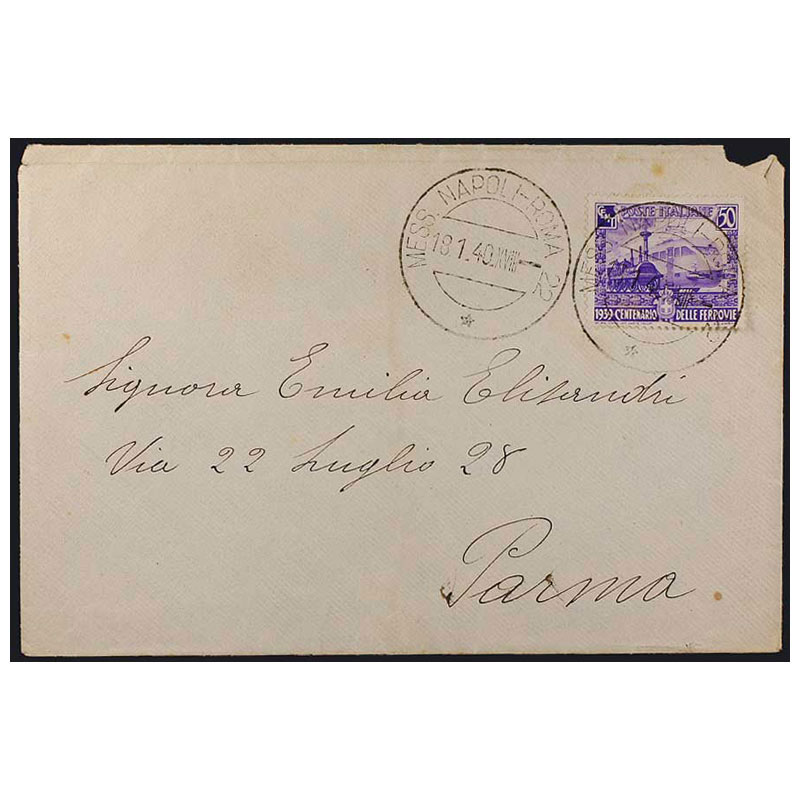 MESS. NAPOLI-ROMA 22
18.1.40.XVIII
POSTE ITALIANE 50
1939 CENTENARIO DELLE FERROVIE
MESS. NAPOLI-RO
Signora Emilia Elisandri
Via 22 Luglio 28
Parma